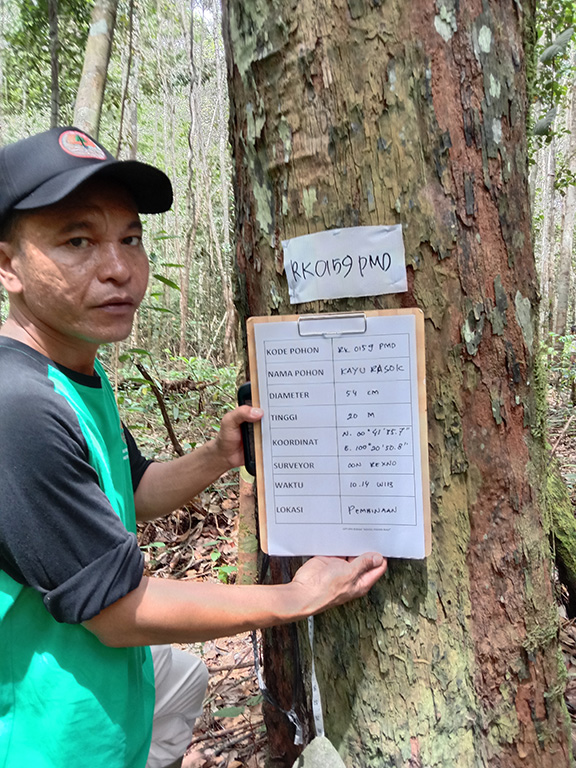 RK0159 PMD
KODE POHON RK 0159 PMD
NAMA POHON KAYU RASOK
DIAMETER 54 CM
TINGGI 20 M
KOORDINAT N. 00° 41' 55.7"
E. 100° 20' 50.8"
SURVEYOR
WAKTU 10.14 WIB
LOKASI PEMBINAAN